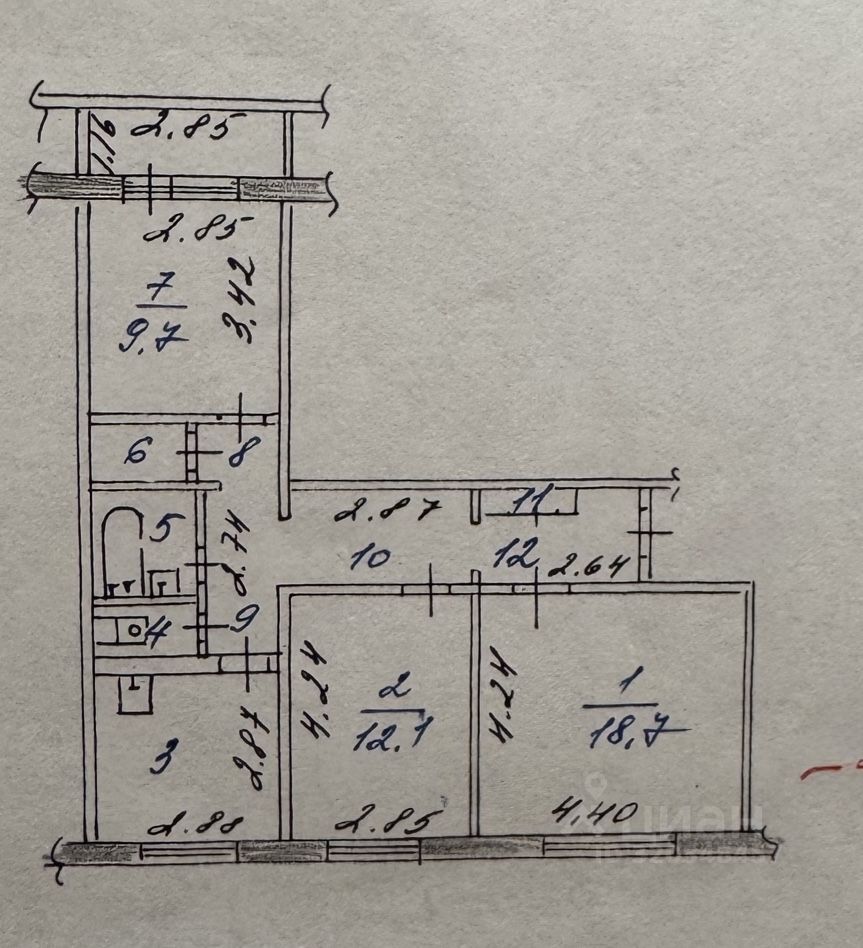 1.16
2.85
2.85
7
9.7
3.42
6
8
5
2.74
2.87
11
10
12
2.64
4
9
4.24
2
12.1
4.24
1
18.7
3
2.87
2.88
2.85
4.40
циан